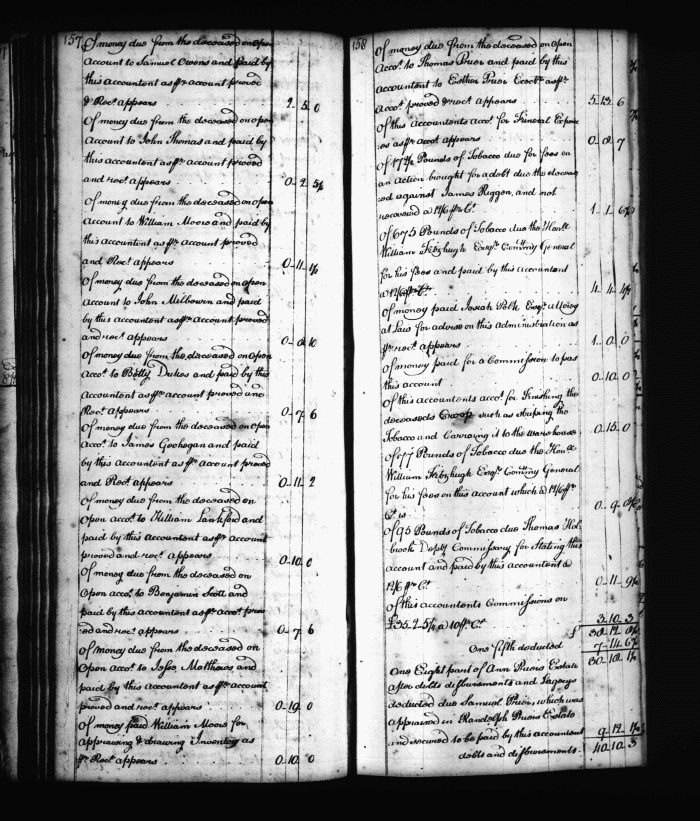 157
Of money due from the deceased on open
Account to Samuel Owens and paid by
this Accountant as ⅌ account proved
& Rect. appears 2. 5. 0
Of money due from the deceased on open
Account to John Thomas and paid by
this accountant as ⅌ account proved
and rect. appears 0. 2. 5½
Of money due from the deceased on open
Account to William Moore and paid by
this accountant as ⅌ account proved
and Rect. appears 0. 11.
Of money due from the deceased on open
account to John Milbourn and paid
by this accountant as ⅌ Account proved
and rect. appears 0. 8. 10
Of money due from the deceased on open
Acct. to Betty Dukes and paid by this
Accountant as ⅌ account proved and
Rect. appears 0. 7. 6
Of money due from the deceased on open
Acct. to James Geohegan and paid
by this Accountant as ⅌ account proved
and Rect. appears 0. 11. 2
Of money due from the deceased on
Open acct. to William Lankford and
paid by this Accountant as ⅌ account
proved and rect. appears 0. 10. 0
Of money due from the deceased on
Open acct. to Benjamin Scott and
paid by this Accountant as ⅌ acct. prov
ed and rect. appears 0. 7. 6
Of money due from the deceased on
Open acct. to Matthews and
paid by this Accountant as ⅌ account
proved and rect. appears 0. 19. 0
Of money paid William Moore for
Appraising & drawing Inventory as
⅌ Rect. appears 0. 10. 0
158
Of money due from the deceased on open
Acct. to Thomas Prior and paid by this
accountant to Esther Prior Execx. as ⅌
Acct. proved & rect. appears 5. 13. 6
Of this Accountants acct. for Funeral Expenc
es as ⅌ acct. appears 0. 8. 7
Of 172 Pounds of Tobacco due for fees on
an action brought for a debt due the deceas
ed against James Riggen, and not
recovered @ 12/6 ⅌ Ct. 1. 1. 6
Of 675 Pounds of Tobacco due the Honble.
William Fitzhugh Esqr. Commy. General
for his fees and paid by this accountant
@ 12/6 ⅌ Ct. 4. 4. 4½
Of money paid Josiah Polk Esqr. attorney
at Law for advise on this Administration as
⅌ rect. appears 1. 0. 0
Of money paid for a Commission to pas
this account 0. 10. 0
Of this accountants acct. for Finishing the
deceaseds Croop such as Striping the
Tobacco and Carrying it to the warehouse 0. 15. 0
Of 77 Pounds of Tobacco due the Honble.
William Fitzhugh Esqr. Commy. General
for his fees on this account which @ 12/6 ⅌
Ct. is 0. 9.
Of 95 Pounds of Tobacco due Thomas Hol
brook Depty. Commissary for Stating this
account and paid by this accountant @
12/6 ⅌ Ct. 0. 11. 9½
Of this Accountants Commissions on
£35. 2. 5¼ @ 10 ⅌ Ct. 3. 10. 3
£ 38. 12.
One fifth deducted 7. 14. 6
30. 18. 1½
One Eight part of Ann Priors Estate
after debts disbursments and Legacys
deducted due Samuel Prior which was
appraised in Randolph Priors Estate
and secured to be paid by this accountant 9. 12.
debts and disbursments. 40. 10. 3